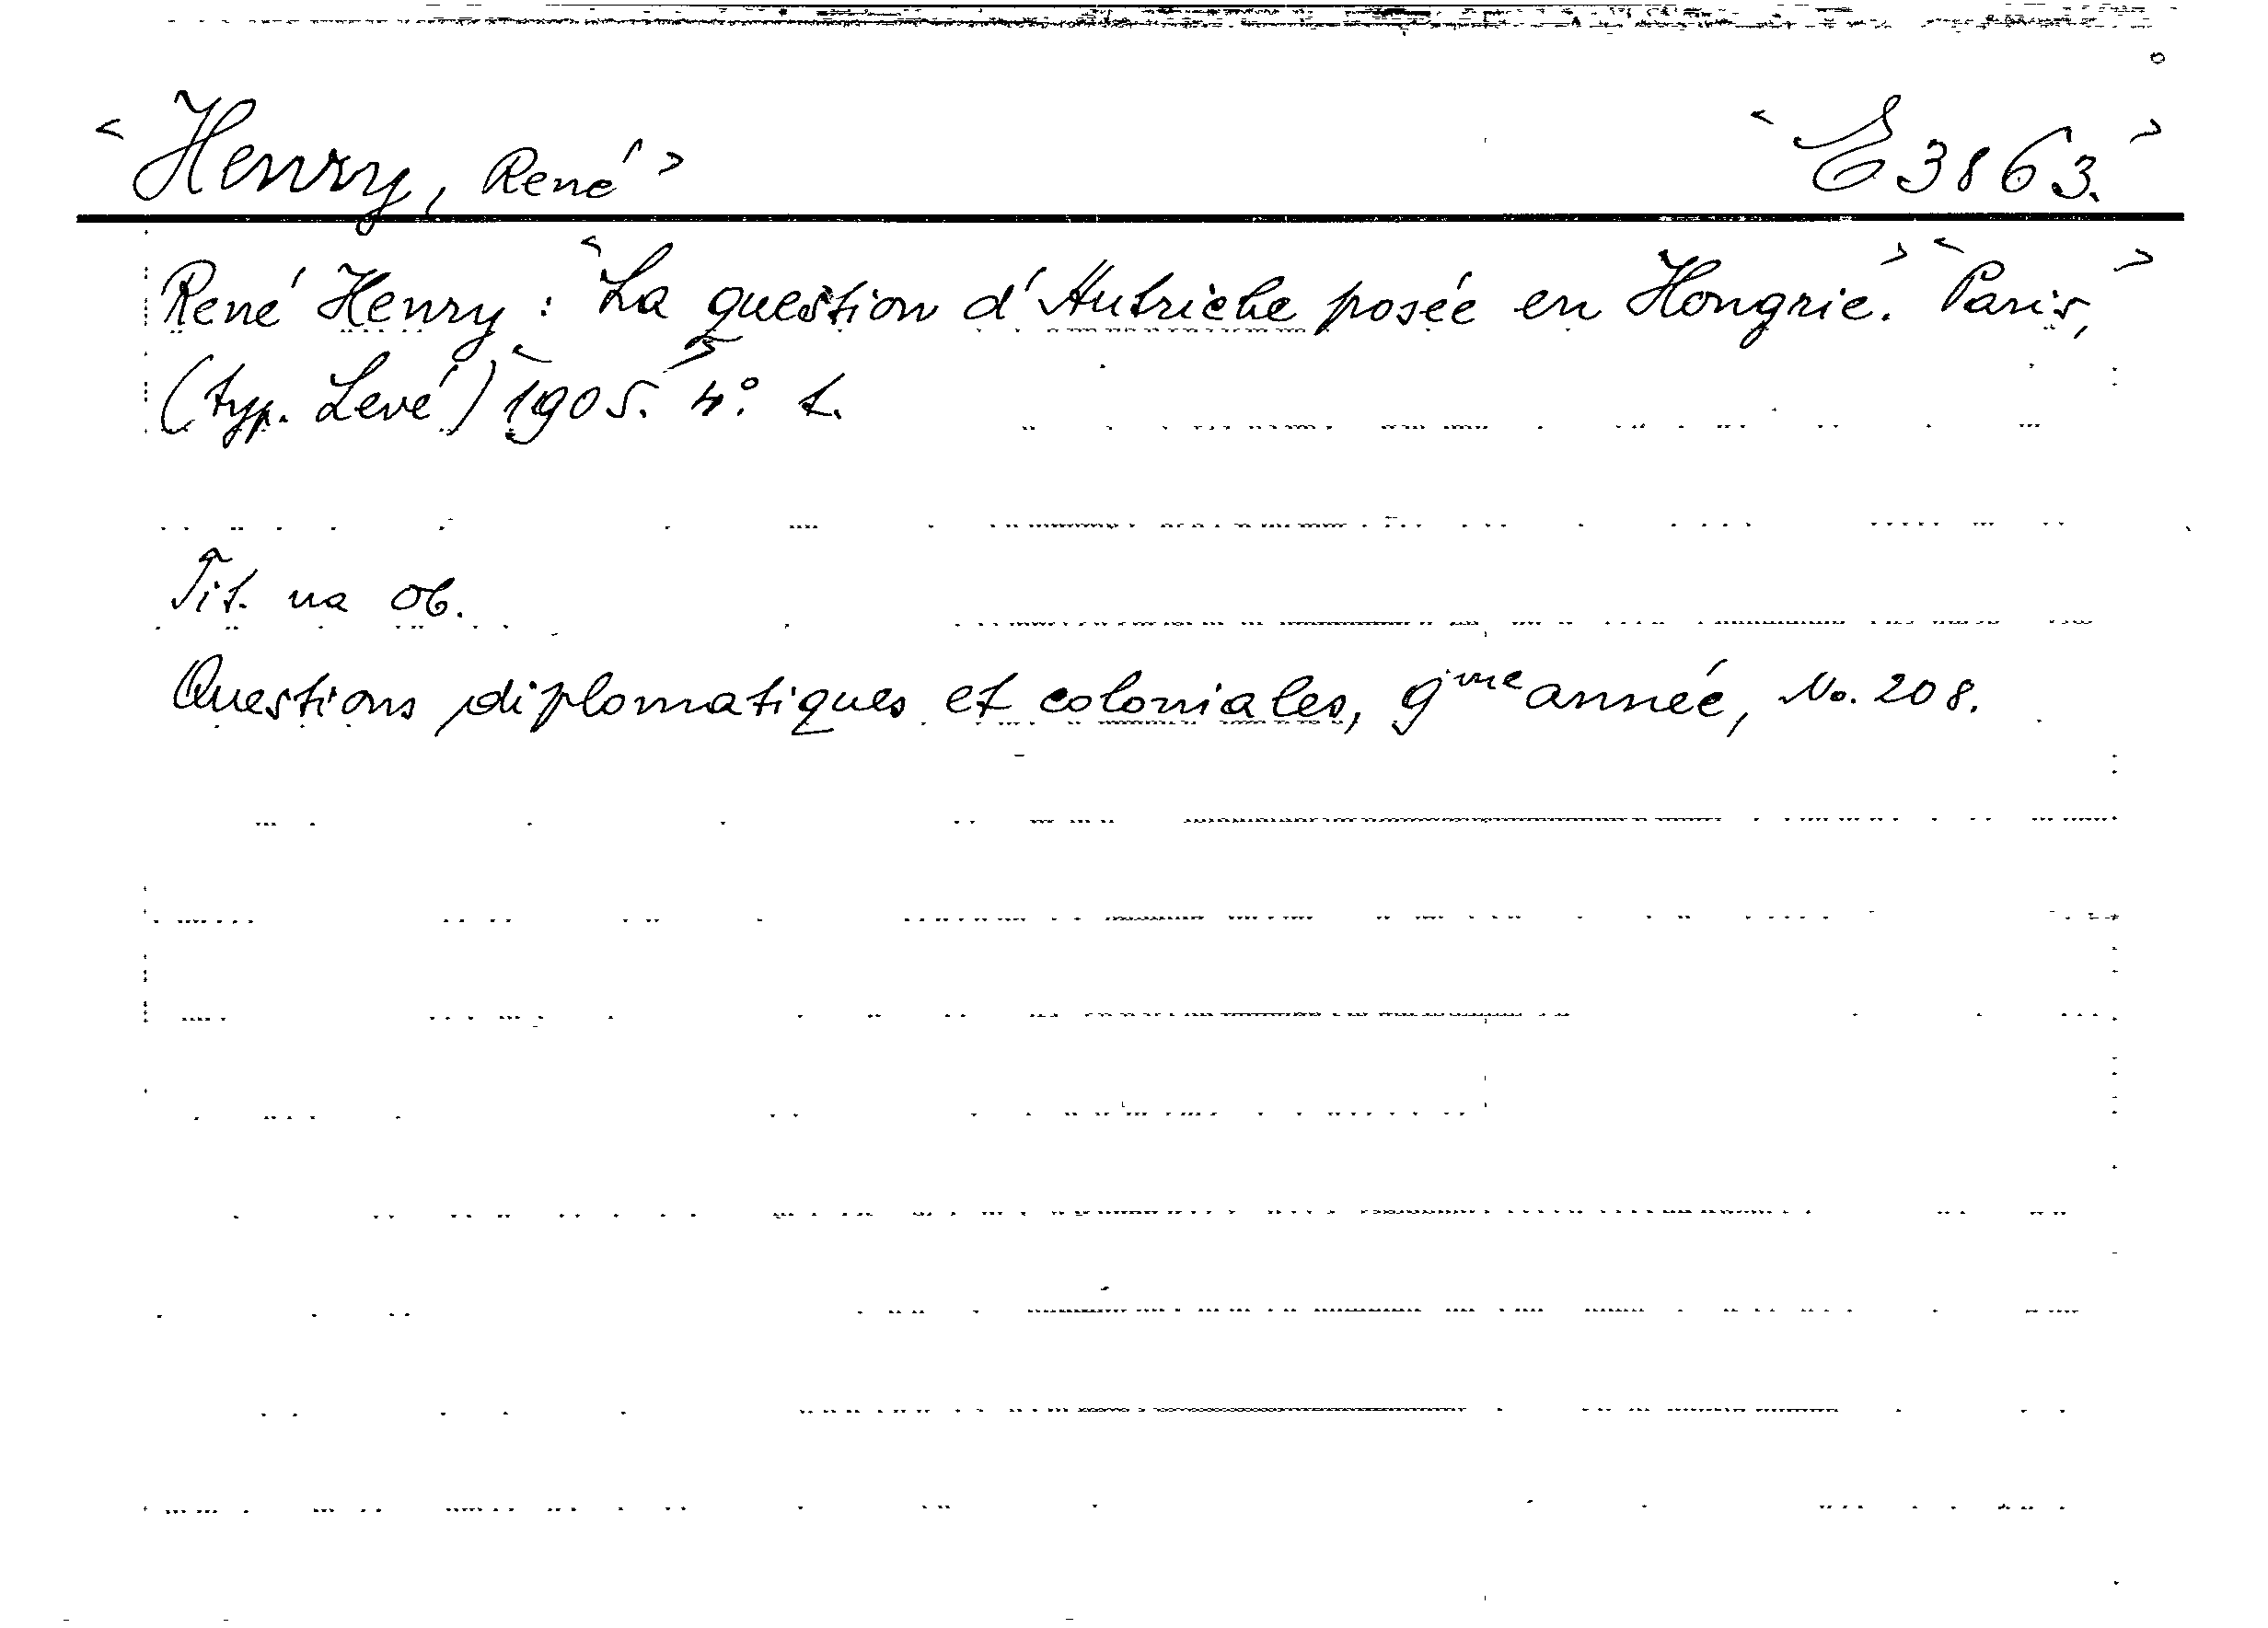 <Henry, René> <E 3863.>
René Henry: <La question d'Autriche posée en Hongrie.> <Paris,>
(typ. Levé) <1905.> 4°. 1.
Tit. na ob.
Questions diplomatiques et coloniales, 9me année, No. 208.